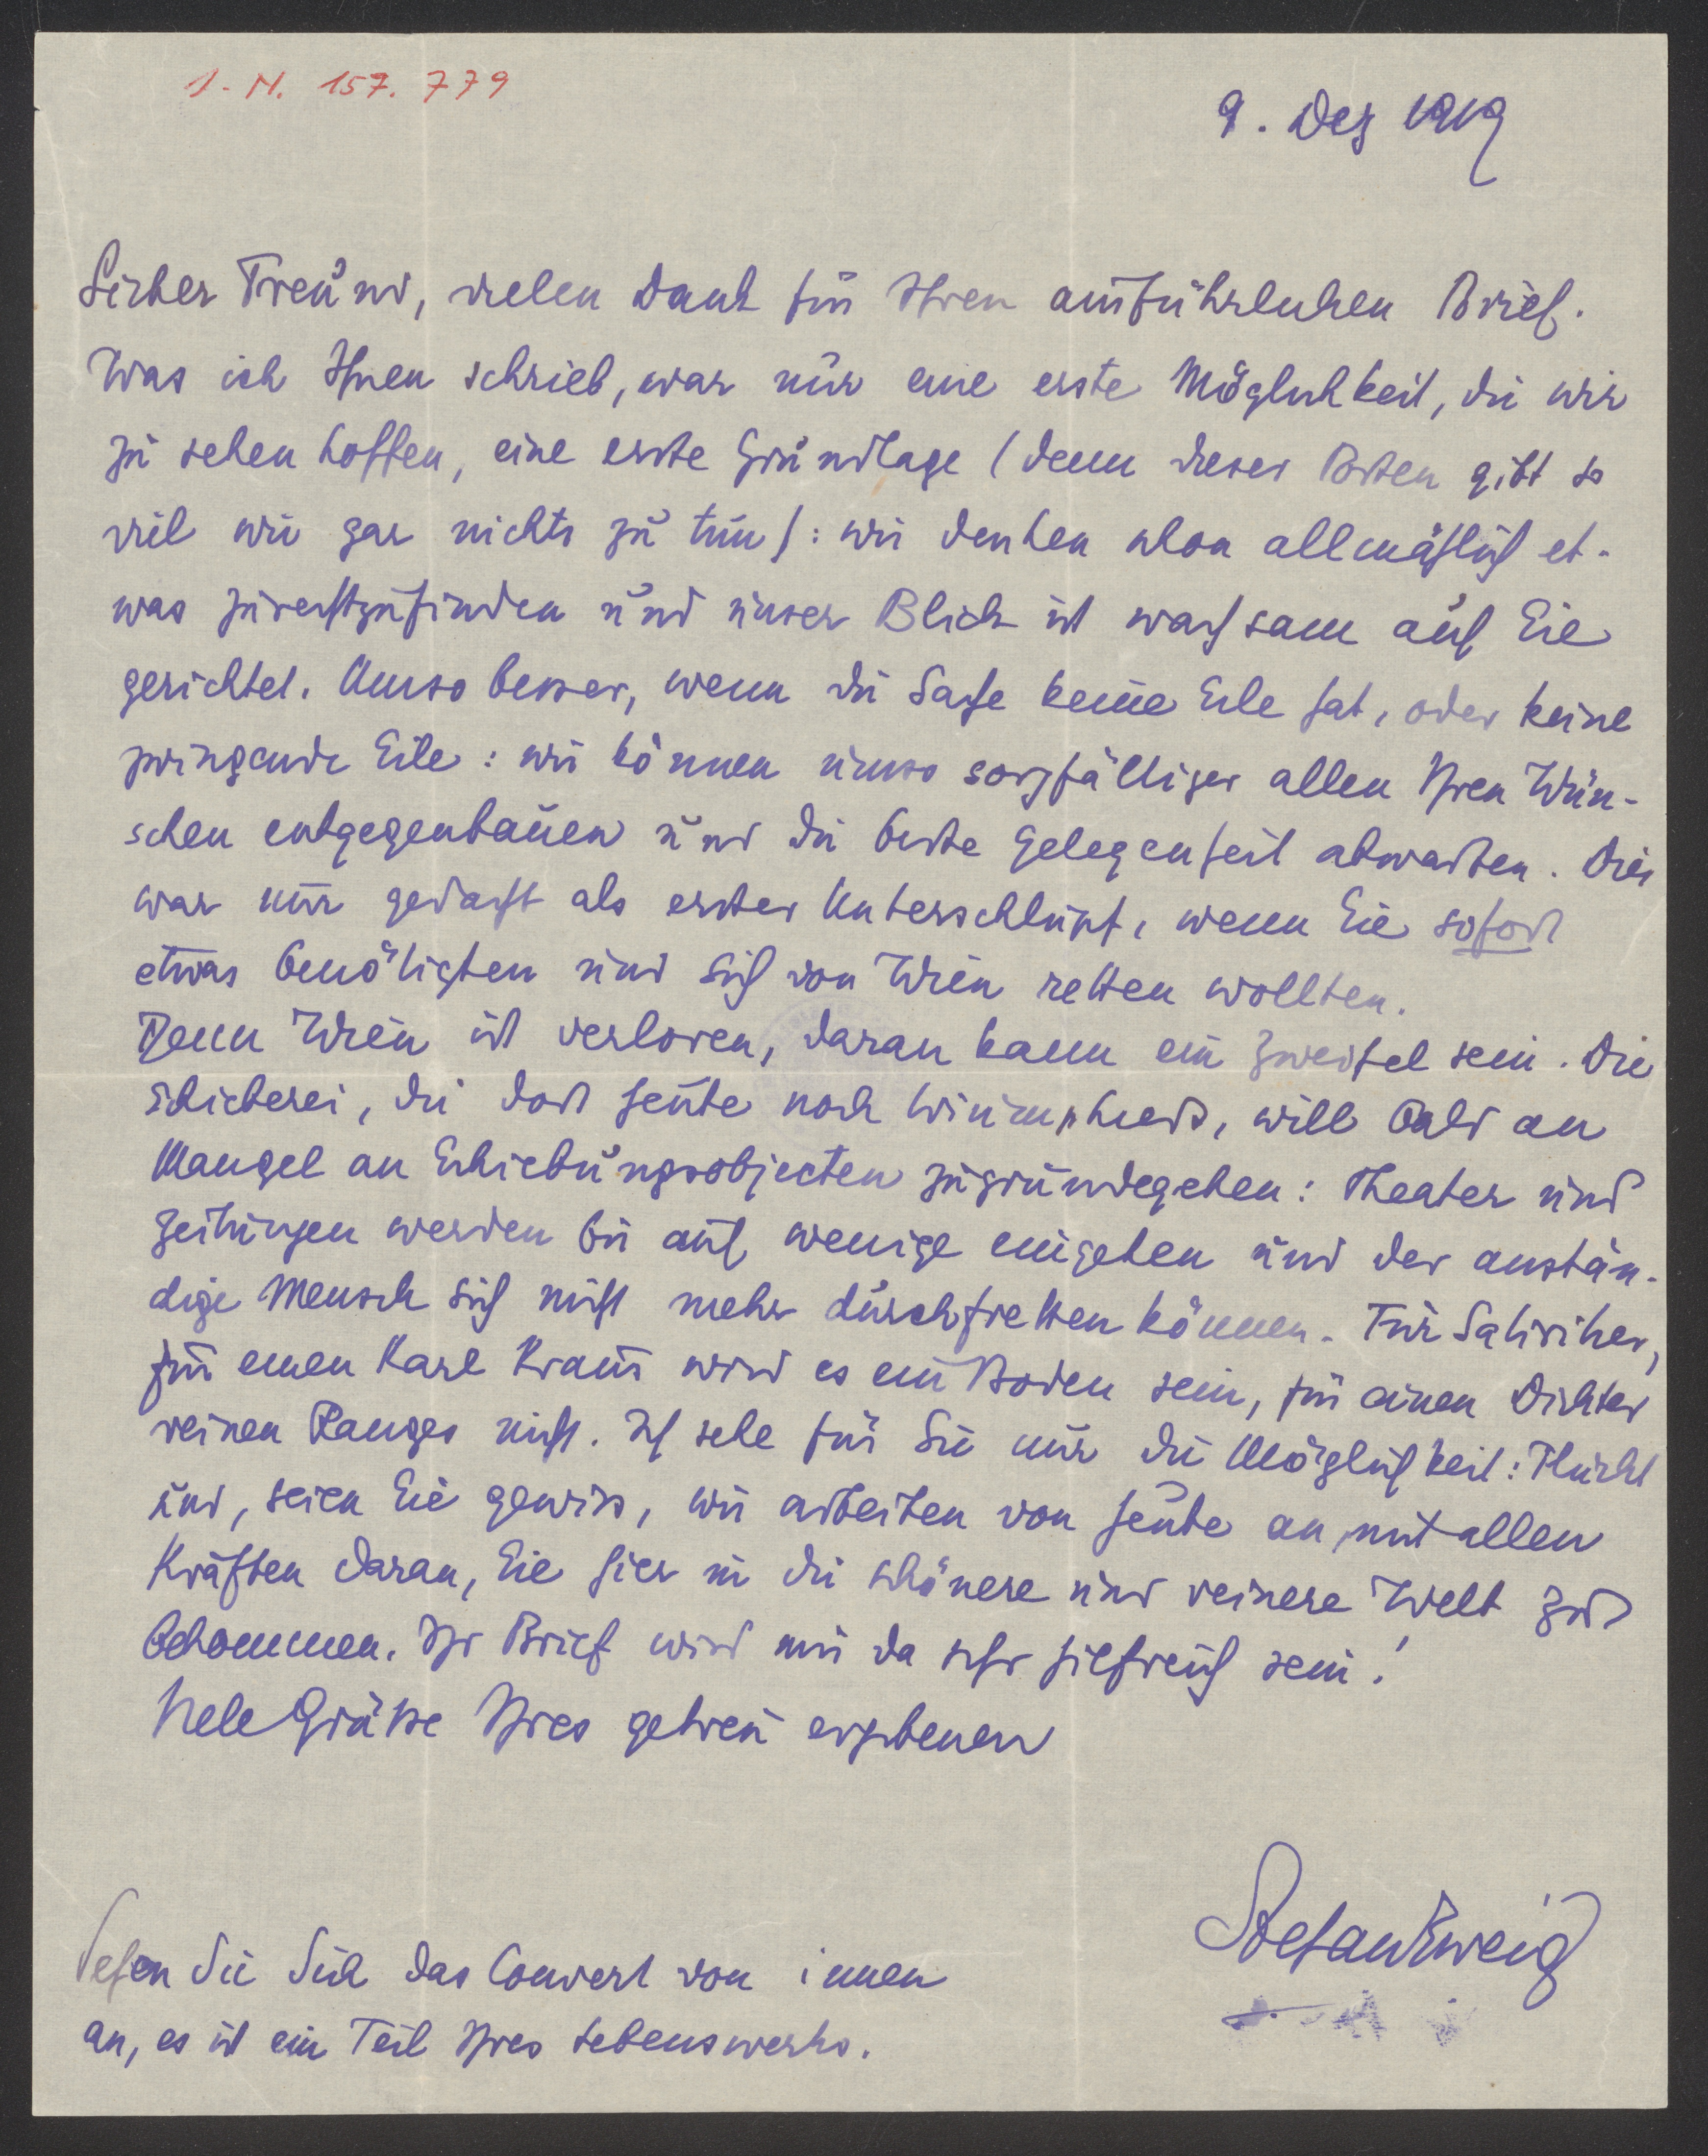 I.N. 157.779
9. Dez 1919
Lieber Freund, vielen Dank für Ihren ausführlichen Brief.
Was ich Ihnen schrieb, war nur eine erste Möglichkeit, die wir
zu sehen hoffen, eine erste Grundlage (denn dieser Posten gibt so
viel wie gar nichts zu tun): wir denken schon allmählich et-
was zurechtzufinden und unser Blick ist wachsam auf Sie
gerichtet. Umso besser, wenn die Sache keine Eile hat, oder keine
zwingende Eile: wir können umso sorgfältiger allen Ihren Wün-
schen entgegenbauen und die beste Gelegenheit abwarten. Dies
war nur gedacht als erster Unterschlupf, wenn Sie sofort
etwas benötigten und sich von Wien retten wollten.
Denn Wien ist verloren, daran kann ein Zweifel sein. Die
Schieberei, die dort heute noch triumphiert, will bald an
Mangel an Schiebungsobjecten zugrundegehen: Theater und
Zeitungen werden bis auf wenige eingehen und der anstän-
dige Mensch sich nicht mehr durchfretten können. Für Satiriker,
für einen Karl Kraus wird es ein Boden sein, für einen Dichter
reinen Ranges nicht. Ich sehe für Sie nur die Möglichkeit: Flucht
und, seien Sie gewiss, wir arbeiten von heute an mit allen
Kräften daran, Sie hier in die schönere und reinere Welt zu
bekommen. Ihr Brief wird mir da sehr hilfreich sein!
Viele Grüsse Ihres getreu ergebenen
Stefan Zweig
Sehen Sie Sich das Couvert von innen
an, es ist ein Teil Ihres Lebenswerks.